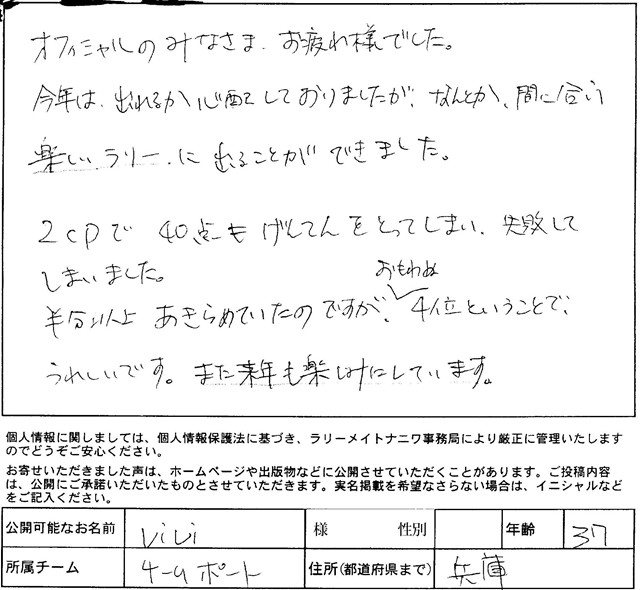 オフィシャルのみなさま、お疲れ様でした。
今年は、出れるか心配しておりましたが、なんとか、間に合う
楽しい、ラリー、に出ることができました。
2cpで 40点もげんてんをとってしまい、失敗して
しまいました。
半分以上 あきらめていたのですが、おもわぬ4位ということで、
うれしいです。また来年も楽しみにしています。
個人情報に関しましては、個人情報保護法に基づき、ラリーメイトナニワ事務局により厳正に管理いたします
のでどうぞご安心ください。
お寄せいただきました声は、ホームページや出版物などに公開させていただくことがあります。ご投稿内容
は、公開にご承諾いただいたものとさせていただきます。実名掲載を希望なさらない場合は、イニシャルなど
をご記入ください。
公開可能なお名前 ViVi 様 性別 年齢 37
所属チーム チームポート 住所(都道府県まで) 兵庫